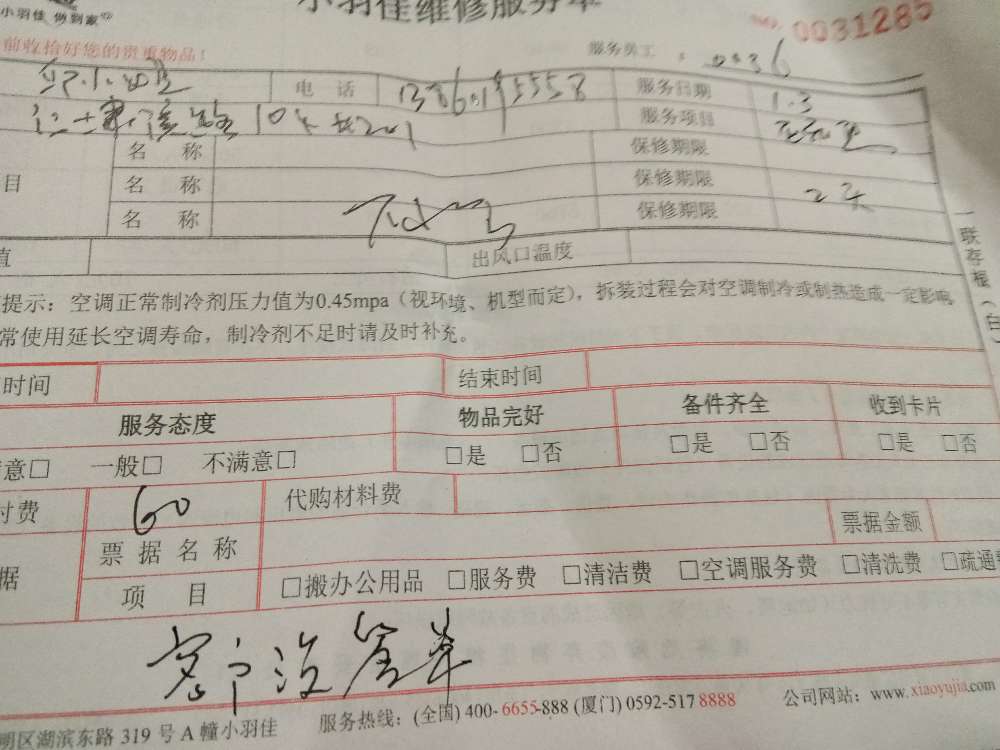 小羽佳 做到家
小羽佳维修服务单
No. 0031285
前收拾好您的贵重物品！
服务员工：0036
电 话 服务日期 1.3
10 201 服务项目
名 称 保修期限
目 名 称 保修期限
名 称 保修期限 2天
值 出风口温度
一联存根（白）
提示：空调正常制冷剂压力值为0.45mpa（视环境、机型而定），拆装过程会对空调制冷或制热造成一定影响，
常使用延长空调寿命，制冷剂不足时请及时补充。
时间 结束时间
服务态度 物品完好 备件齐全 收到卡片
意□ 一般□ 不满意□ □是 □否 □是 □否 □是 □否
付费 60 代购材料费
据 票据名称 票据金额
项 目 □搬办公用品 □服务费 □清洁费 □空调服务费 □清洗费 □疏通费
客户没签单
明区湖滨东路 319 号 A 幢小羽佳 服务热线：(全国) 400-6655-888 (厦门) 0592-517 8888 公司网站：www.xiaoyujia.com